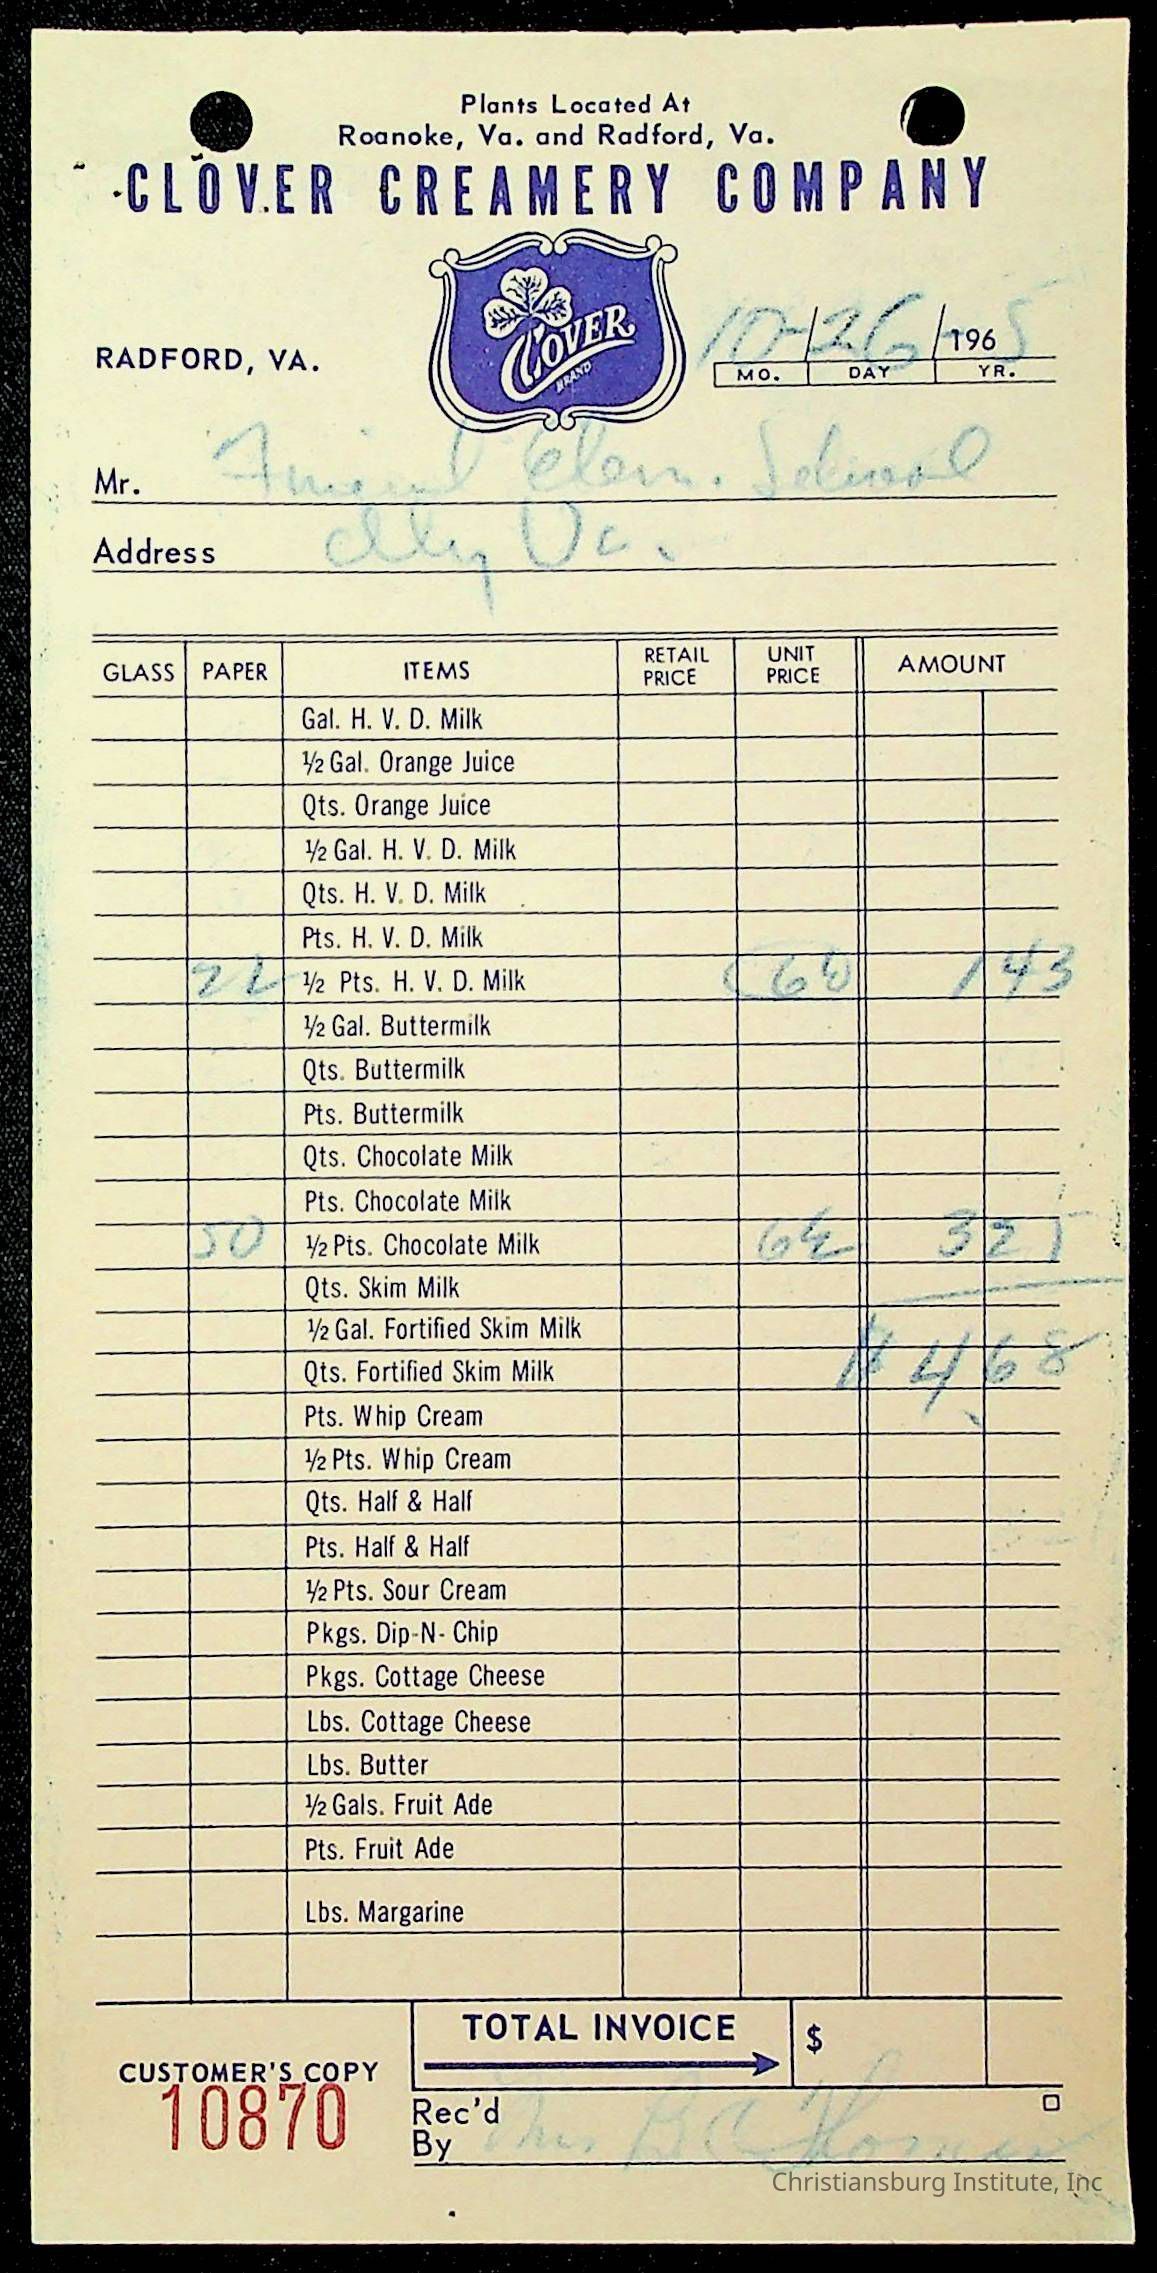 Plants Located At
Roanoke, Va. and Radford, Va.
CLOVER CREAMERY COMPANY
CLOVER
BRAND
RADFORD, VA.
10-/26/1965
MO. DAY YR.
Mr. Friend Elem. School
Address City Va.
GLASS PAPER ITEMS RETAIL PRICE UNIT PRICE AMOUNT
Gal. H. V. D. Milk
½ Gal. Orange Juice
Qts. Orange Juice
½ Gal. H. V. D. Milk
Qts. H. V. D. Milk
Pts. H. V. D. Milk
22 ½ Pts. H. V. D. Milk 6½ 1 43
½ Gal. Buttermilk
Qts. Buttermilk
Pts. Buttermilk
Qts. Chocolate Milk
Pts. Chocolate Milk
50 ½ Pts. Chocolate Milk 6½ 3 25
Qts. Skim Milk
½ Gal. Fortified Skim Milk
$ 4 68
Qts. Fortified Skim Milk
Pts. Whip Cream
½ Pts. Whip Cream
Qts. Half & Half
Pts. Half & Half
½ Pts. Sour Cream
Pkgs. Dip-N-Chip
Pkgs. Cottage Cheese
Lbs. Cottage Cheese
Lbs. Butter
½ Gals. Fruit Ade
Pts. Fruit Ade
Lbs. Margarine
TOTAL INVOICE $
CUSTOMER'S COPY
10870
Rec'd
By Mrs. Thomas
Christiansburg Institute, Inc